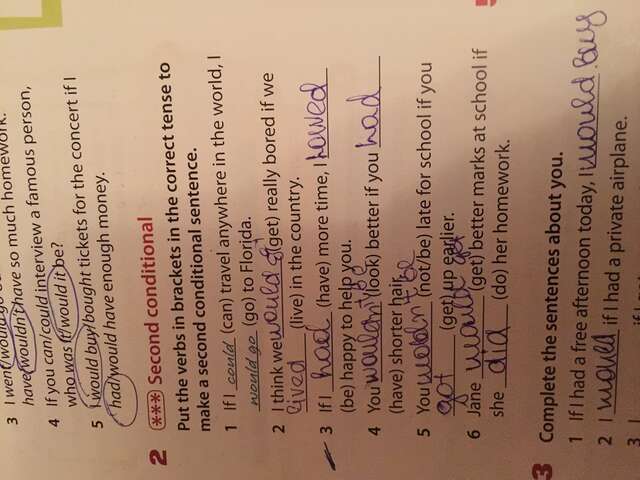 3 I went
have wouldn't have so much homework.
4 If you can/could interview a famous person,
who was it/would it be?
5 I would buy/bought tickets for the concert if I
had/would have enough money.
2 *** Second conditional
Put the verbs in brackets in the correct tense to
make a second conditional sentence.
1 If I could (can) travel anywhere in the world, I
would go (go) to Florida.
2 I think we would get (get) really bored if we
lived (live) in the country.
3 If I had (have) more time, I
(be) happy to help you.
4 You (look) better if you had
(have) shorter hair.
5 You (not/be) late for school if you
got (get) up earlier.
6 Jane would get (get) better marks at school if
she did (do) her homework.
3 Complete the sentences about you.
1 If I had a free afternoon today, I would buy
2 I if I had a private airplane.
3 I